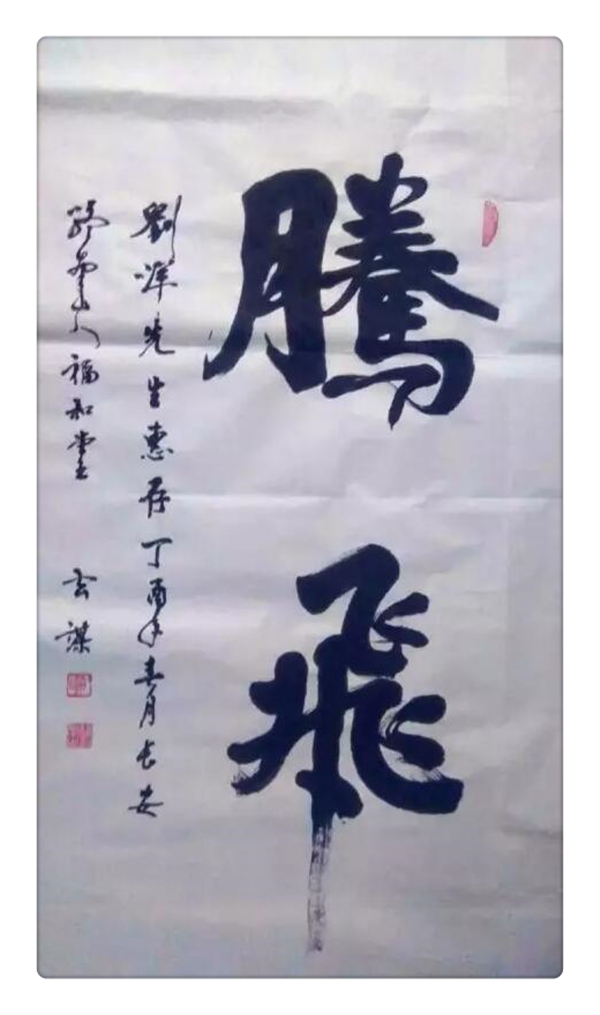 騰飛
劉洋先生惠存丁酉年春月长安
人福和堂 玄謀